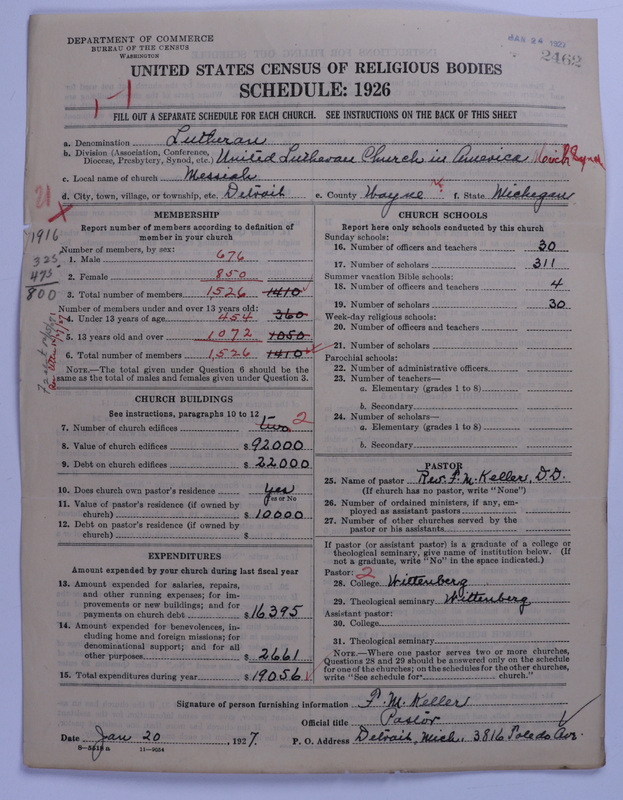 DEPARTMENT OF COMMERCE
BUREAU OF THE CENSUS
WASHINGTON
JAN 24 1927
2462
UNITED STATES CENSUS OF RELIGIOUS BODIES
SCHEDULE: 1926
1-1
FILL OUT A SEPARATE SCHEDULE FOR EACH CHURCH. SEE INSTRUCTIONS ON THE BACK OF THIS SHEET
a. Denomination Lutheran
b. Division (Association, Conference, Diocese, Presbytery, Synod, etc.) United Lutheran Church in America Mich Synod
c. Local name of church Messiah
d. City, town, village, or township, etc. Detroit e. County Wayne f. State Michigan
21
x
1916
325
475
800
MEMBERSHIP
Report number of members according to definition of member in your church
Number of members, by sex:
1. Male 676
2. Female 850
3. Total number of members 1,526 1410
Number of members under and over 13 years old:
4. Under 13 years of age 454 360
5. 13 years old and over 1072 1050
6. Total number of members 1,526 1410
NOTE.—The total given under Question 6 should be the same as the total of males and females given under Question 3.
CHURCH BUILDINGS
See instructions, paragraphs 10 to 12
7. Number of church edifices two 2
8. Value of church edifices $ 92000
9. Debt on church edifices $ 22000
10. Does church own pastor's residence yes
Yes or No
11. Value of pastor's residence (if owned by church) $ 10000
12. Debt on pastor's residence (if owned by church) $
EXPENDITURES
Amount expended by your church during last fiscal year
13. Amount expended for salaries, repairs, and other running expenses; for improvements or new buildings; and for payments on church debt $ 16395
14. Amount expended for benevolences, including home and foreign missions; for denominational support; and for all other purposes $ 2661
15. Total expenditures during year $ 19056
CHURCH SCHOOLS
Report here only schools conducted by this church
Sunday schools:
16. Number of officers and teachers 30
17. Number of scholars 311
Summer vacation Bible schools:
18. Number of officers and teachers 4
19. Number of scholars 30
Week-day religious schools:
20. Number of officers and teachers
21. Number of scholars
Parochial schools:
22. Number of administrative officers
23. Number of teachers—
a. Elementary (grades 1 to 8)
b. Secondary
24. Number of scholars—
a. Elementary (grades 1 to 8)
b. Secondary
PASTOR
25. Name of pastor Rev. F. M. Keller, D.D.
(If church has no pastor, write "None")
26. Number of ordained ministers, if any, employed as assistant pastors
27. Number of other churches served by the pastor or his assistants
If pastor (or assistant pastor) is a graduate of a college or theological seminary, give name of institution below. (If not a graduate, write "No" in the space indicated.)
Pastor: 2
28. College Wittenberg
29. Theological seminary Wittenberg
Assistant pastor:
30. College
31. Theological seminary
NOTE.—Where one pastor serves two or more churches, Questions 28 and 29 should be answered only on the schedule for one of the churches; on the schedules for the other churches, write "See schedule for church."
Signature of person furnishing information F. M. Keller
Official title Pastor
Date Jan 20, 1927. P. O. Address Detroit, Mich., 3816 Toledo Ave.
8-5518 a 11-9054